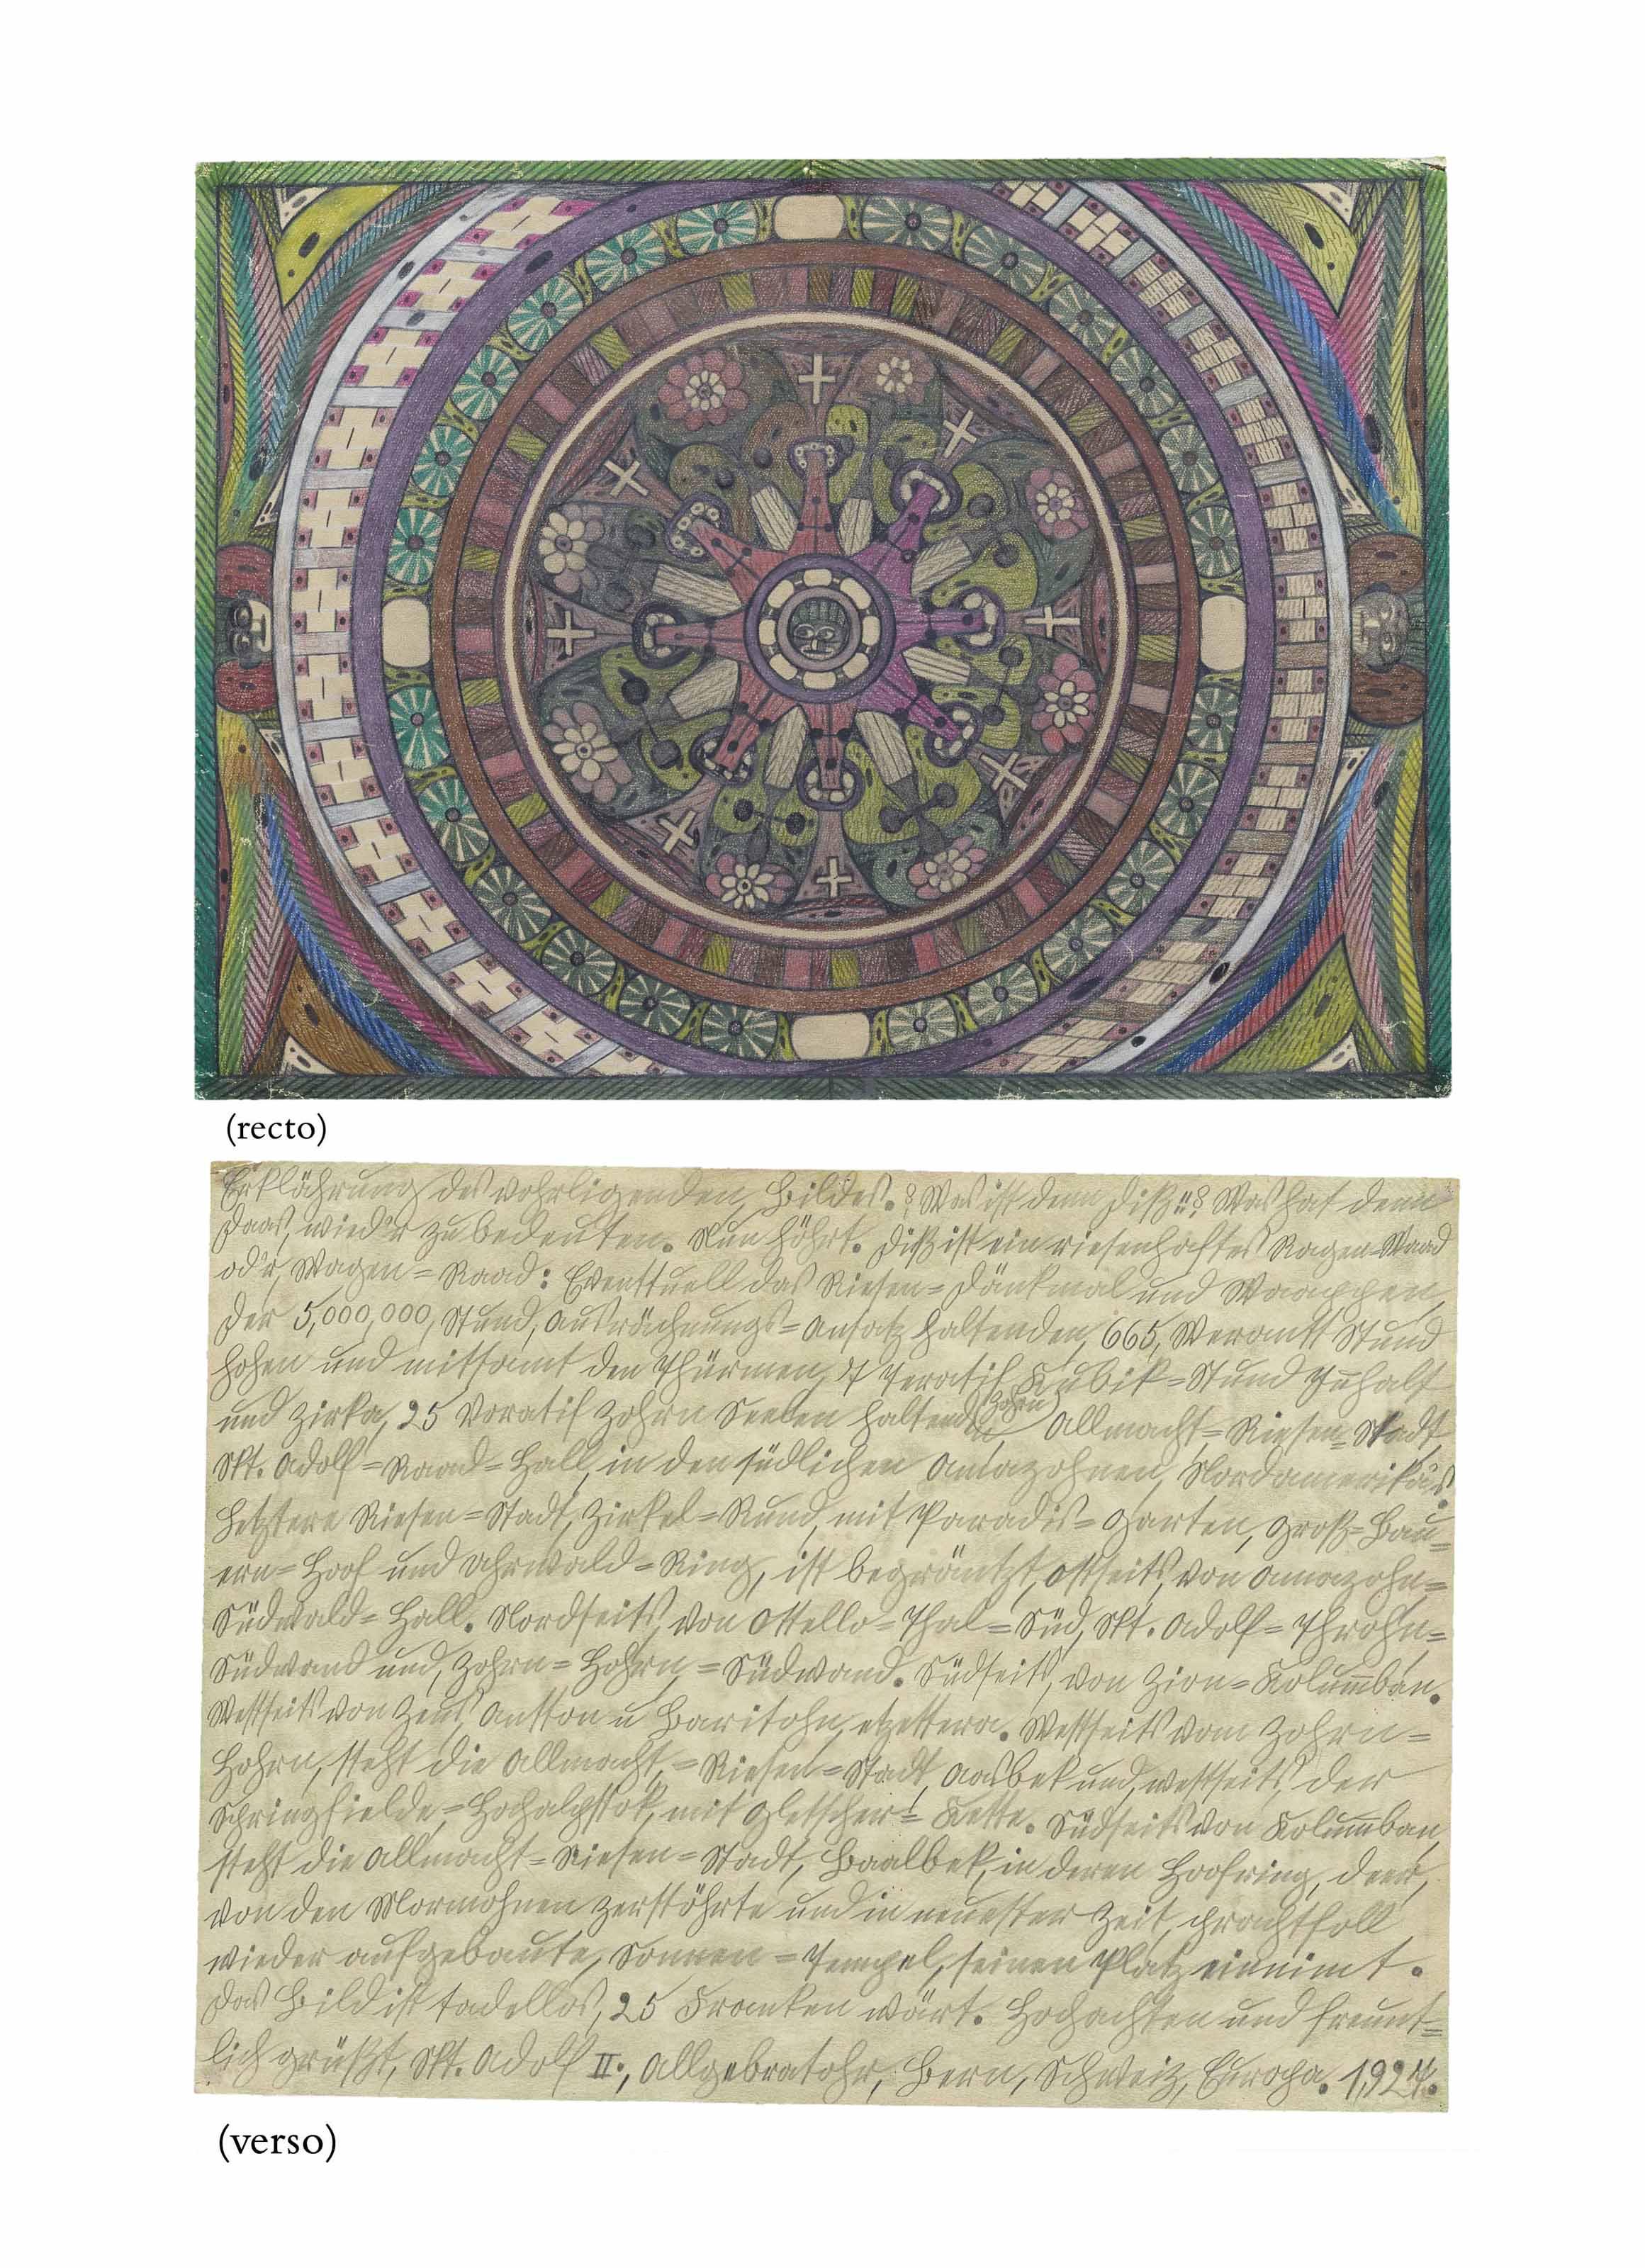 (recto)
Erklährung des vohrligenden, Bildes. ? Was ist denn Diß!!? Was hat denn
Daas, wied'r zu bedeuten. Nun höhrt. Diß ist ein riesenhaftes Ragen-Waad
od'r, Wagen=Raad: Eventtuell das Riesen=Dänkmal und Waappen,
Der 5,000,000, Stund, Ausrächnungs=Ansatz haltenden, 665, Werantt Stund
hohen und mittsamt den Thürmen, Kubik=Stund Inhalt
und Zirka, 25 Voratif Zohrn Seelen haltend Allmacht,=Riesen=Stadt,
Skt. Adolf=Raad=Hall, in den südlichen Amazohnen, Nordamerikas.
Letztere Riesen=Stadt, Zirkel=Rund, mit Paradis=Garten, Groß=Bau=
ern=Hoof und Uhrwald=Ring, ist begräntzt, Ostseits, von Amazohn=
Südwald=Hall. Nordseits, von Ottello=Thal=Süd, Skt. Adolf=Throhn=
Südwand und, Zohrn=Hohrn,=Südwand. Südseits, von Zion=Kolumban.
Westseits von Zeus, Antton u Baritohn, etzettera. Westseits vom Zohrn=
Hohrn, steht die Allmacht,=Riesen=Stadt, Aasbek und, westseits, der
Springfielde,=Hochalpstok, mit Gletscher=Kette. Südseits von Kolumban,
steht die Allmacht=Riesen=Stadt, Baalbek, in deren Hoofring, deer,
von den Mormohnen zerstöhrte und in neuester Zeit, prachtfoll
wieder aufgebaute, Sonnen=Tempel, seinen Platz einnimt.
Das Bild ist tadellos, 25 Franken wärt. Hochachten und freunt=
lich grüßt, Skt. Adolf II:, Allgebratohr, Bern, Schweiz, Europa. 1,924.
(verso)